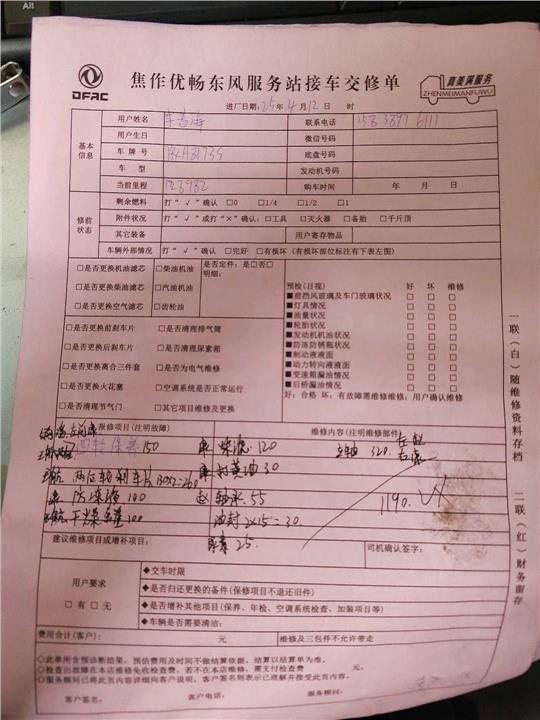 Alt
DFAC
焦作优畅东风服务站接车交修单
真美满服务
ZHENMEIMANFUWU
进厂日期:25年4月12日 时
基本信息
用户姓名
联系电话
用户生日
微信号码
车牌号
底盘号码
车型
发动机号码
当前里程 123982
购车时间 年 月 日
修前状态
剩余燃料 打“√”确认 □0 □1/4 □1/2 □1
附件状况 打“√”或打“×”确认:□工具 □灭火器 □备胎 □千斤顶
其它装备
用户寄存物品
车辆外部情况 打“√”确认 □完好 □有损坏(有损坏部位标注有下表左图)
□是否更换机油滤芯 □柴油机油
□是否更换柴油滤芯 □汽油机油
□是否更换空气滤芯 □齿轮油
是否定件:是□否□
明细:
□是否更换前刹车片 □是否清理排气筒
□是否更换后刹车片 □是否清理尿素箱
□是否更换离合三件套 □是否为电气维修
□是否更换火花塞 □空调系统是否正常运行
□是否清理节气门 □其它项目维修及更换
预检(目视) 好 坏 维修
■前挡风玻璃及车门玻璃状况 □ □ □
■灯具情况 □ □ □
■油量状况 □ □ □
■轮胎状况 □ □ □
■发动机机油状况 □ □ □
■防冻防锈瓶状况 □ □ □
■制动液液面 □ □ □
■动力转向液液面 □ □ □
■变速箱漏油情况 □ □ □
■后桥漏油情况 □ □ □
好:合格 坏:有故障需维修维修:用户确认维修
报修项目(注明故障)
维修内容(注明维修部件)
四轮保养 150
柴滤 120
主轴 320
两后轮刹车片 130×2=260
打黄油 30
防冻液 100
轴承 55
1190.
干燥罐 100
油封 2×15=30
25.
建议维修项目或增补项目:
司机确认签字:
用户要求
□有□无
◆交车时限
◆是否归还更换的备件(保修项目不退还旧件)
◆是否增补其他项目(保养、年检、空调系统检查、加装项目等)
◆车辆是否需要清洁:
费用合计(客户): 元
维修及三包件不允许带走
○此单所含预诊断结果,预估费用及时间不做结算依据,结算以结算单为准。
○检查出故障在本店维修免收检查费,若不在本店维修,需支付检查费 元。
○服务顾问已将此页内容详细向客户说明,客户签名则表示已理解并接受此页内容。
客户签名:
客户电话:
服务顾问:
一联(白)随维修资料存档
二联(红)财务留存